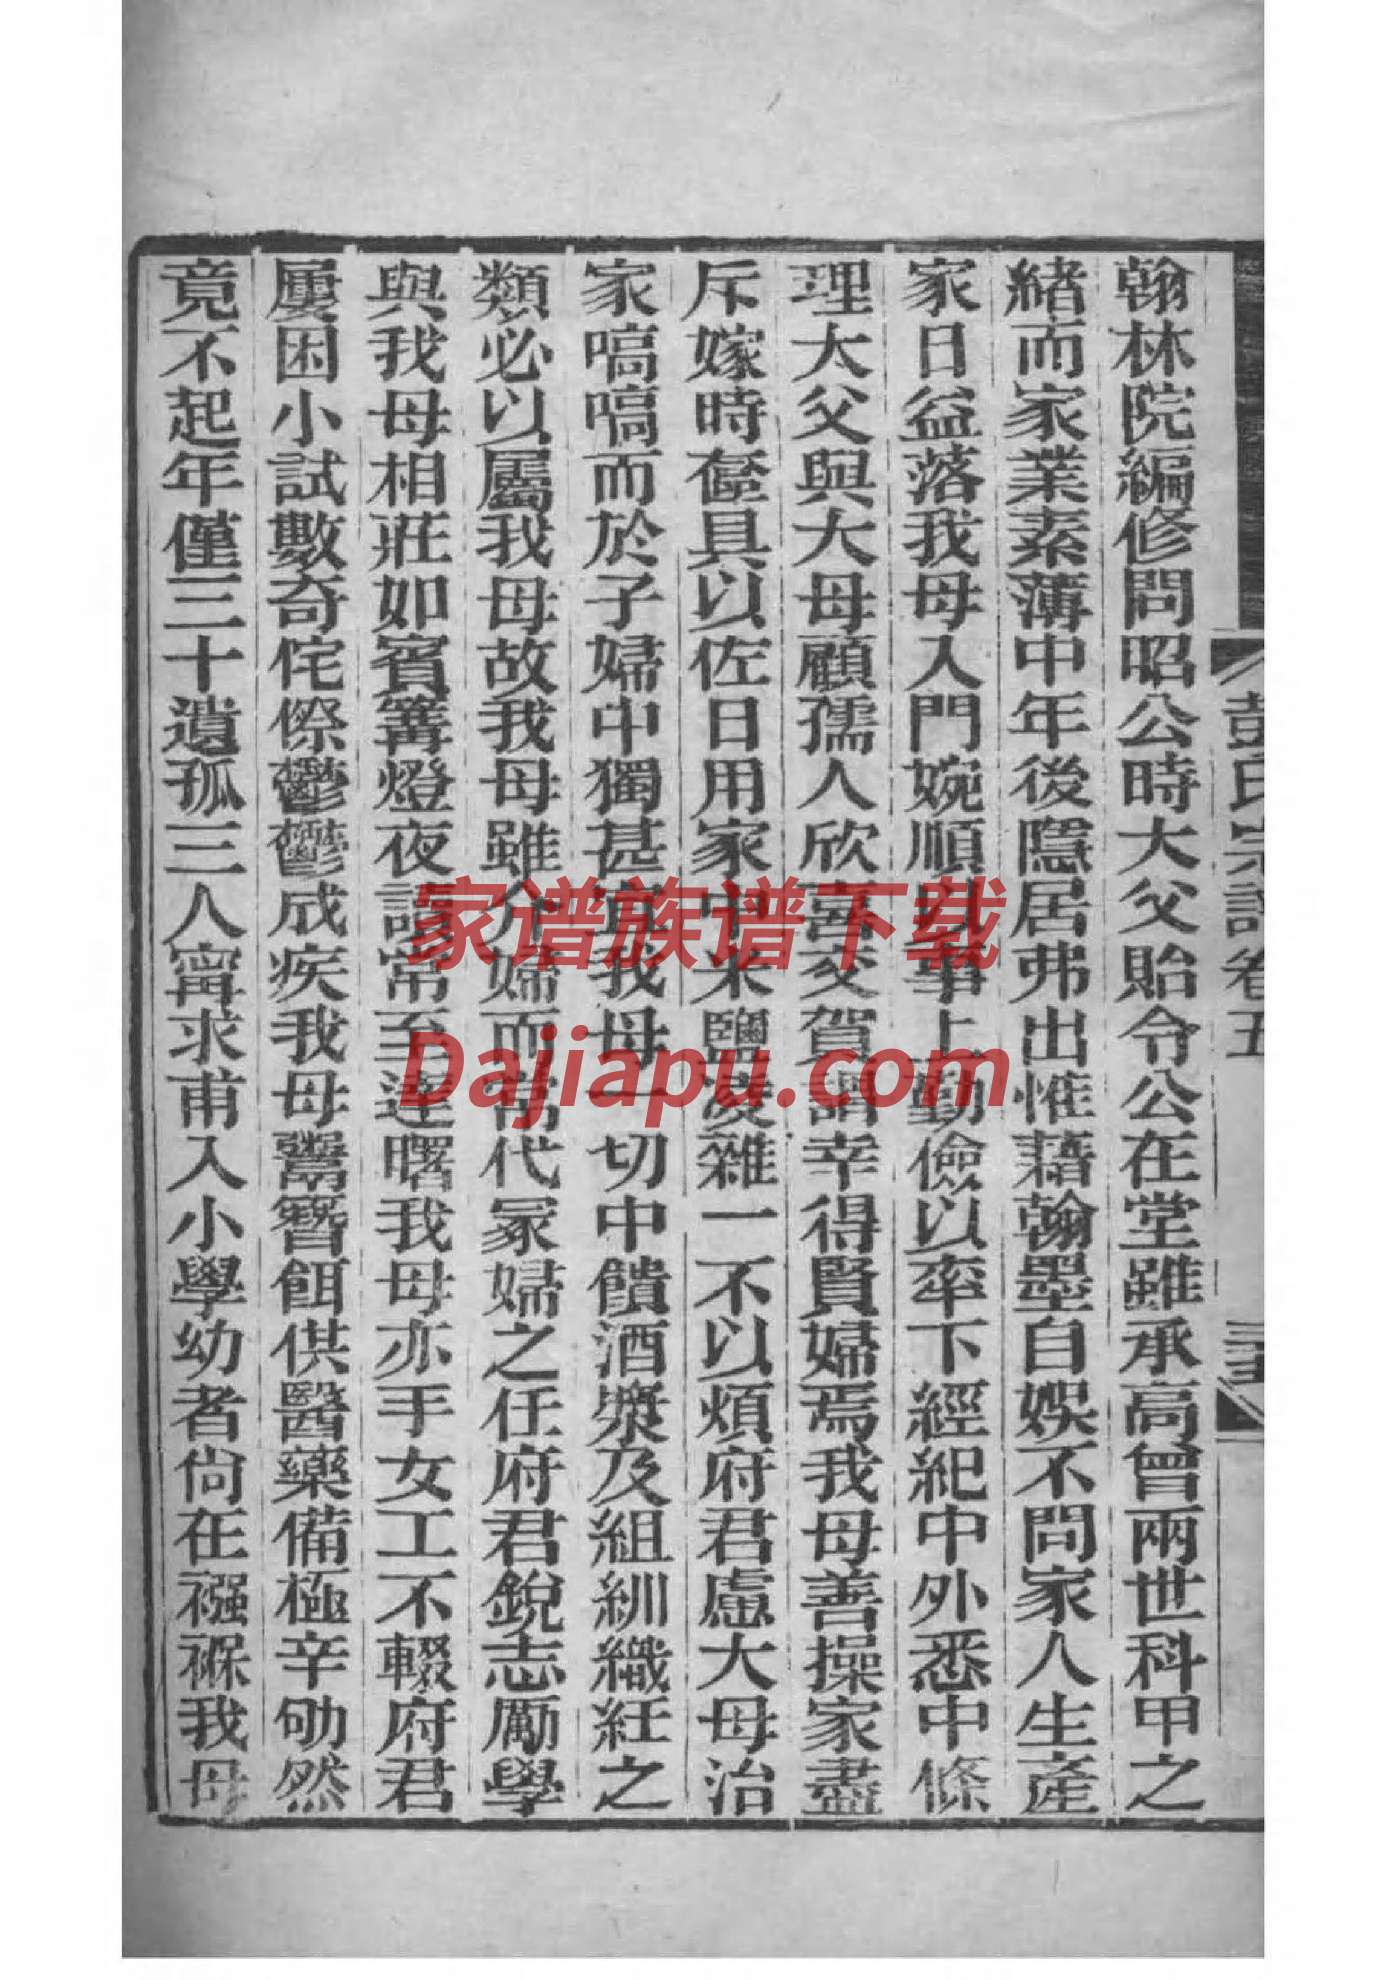 彭氏宗譜卷五
翰林院編修問昭公時大父貽令公在堂雖承高曾兩世科甲之
緒而家業素薄中年後隱居弗出惟藉翰墨自娛不問家人生產
家日益落我母入門婉順以事上勤儉以率下經紀中外悉中條
理太父與大母顧孺人欣喜交賀謂幸得賢婦焉我母善操家盡
斥嫁時奩具以佐日用家中米鹽淩雜一不以煩府君慮大母治
家嗃嗃而於子婦中獨甚宜我母一切中饋酒漿及組紃織紝之
類必以屬我母故我母雖介婦而常代冢婦之任府君銳志勵學
與我母相莊如賓篝燈夜讀常至達曙我母亦手女工不輟府君
屢困小試數奇侘傺鬱鬱成疾我母鬻簪餌供醫藥備極辛勩然
竟不起年僅三十遺孤三人甯求甫入小學幼者尙在襁褓我母
家谱族谱下载
Dajiapu.com